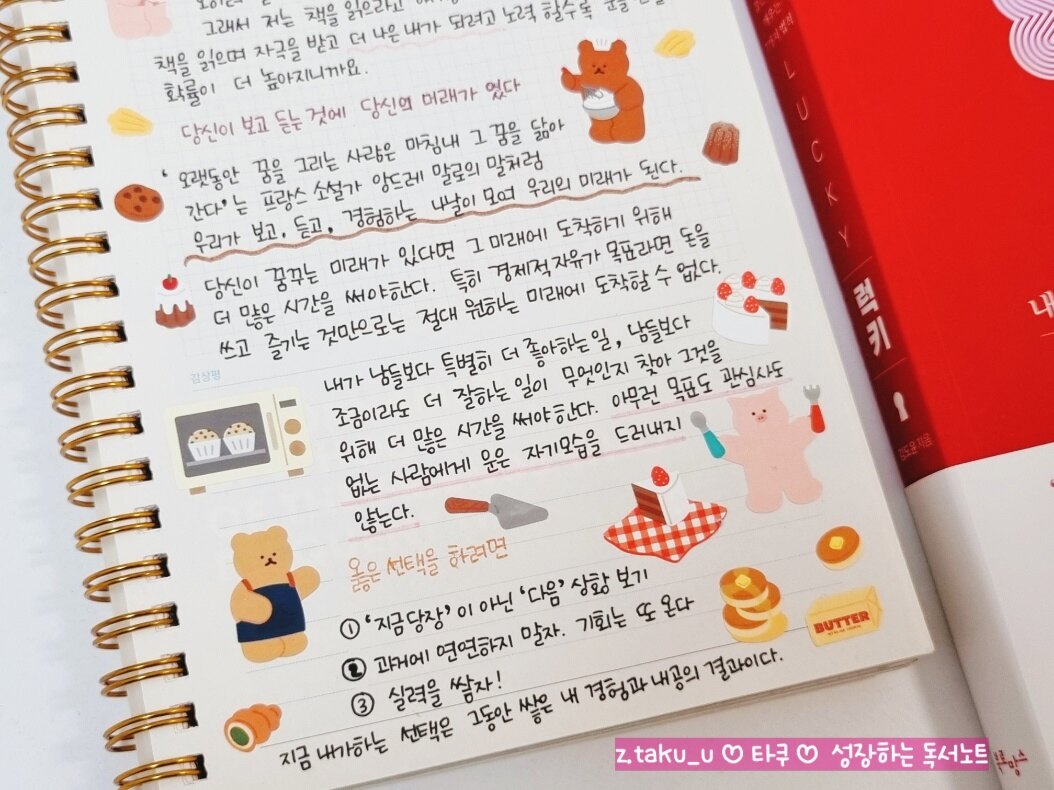 그래서 저는 책을 읽으라고
책을 읽으며 자극을 받고 더 나은 내가 되려고 노력 할수록
확률이 더 높아지니까요.
당신이 보고 듣는 것에 당신의 미래가 있다
'오랫동안 꿈을 그리는 사람은 마침내 그 꿈을 닮아
간다'는 프랑스 소설가 앙드레 말로의 말처럼
우리가 보고, 듣고, 경험하는 나날이 모여 우리의 미래가 된다.
당신이 꿈꾸는 미래가 있다면 그 미래에 도착하기 위해
더 많은 시간을 써야한다. 특히 경제적자유가 목표라면 돈을
쓰고 즐기는 것만으로는 절대 원하는 미래에 도착할 수 없다.
김상평
내가 남들보다 특별히 더 좋아하는일, 남들보다
조금이라도 더 잘하는 일이 무엇인지 찾아 그것을
위해 더 많은 시간을 써야한다. 아무런 목표도 관심사도
없는 사람에게 운은 자기모습을 드러내지
않는다.
옳은 선택을 하려면
① '지금당장'이 아닌 '다음' 상황 보기
② 과거에 연연하지 말자. 기회는 또 온다
③ 실력을 쌓자!
지금 내가하는 선택은 그동안 쌓은 내 경험과 내공의 결과이다.
BUTTER
LUCKY
럭키
김도윤 지음
내
z.taku_u ♡ 타쿠 ♡ 성장하는 독서노트